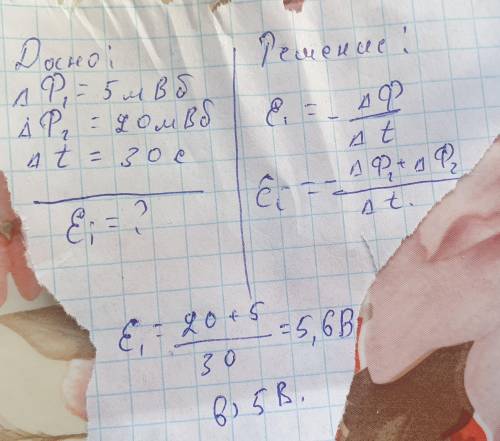 Дано:
ΔФ₁ = 5 мВб
ΔФ₂ = 20 мВб
Δt = 30 с
Ɛi = ?
Решение:
Ɛi = - ΔФ / Δt
Ɛi = - ΔФ₂ + ΔФ₂ / Δt.
Ɛi = 20 + 5 / 30 = 5,6 В
в) 5 В.